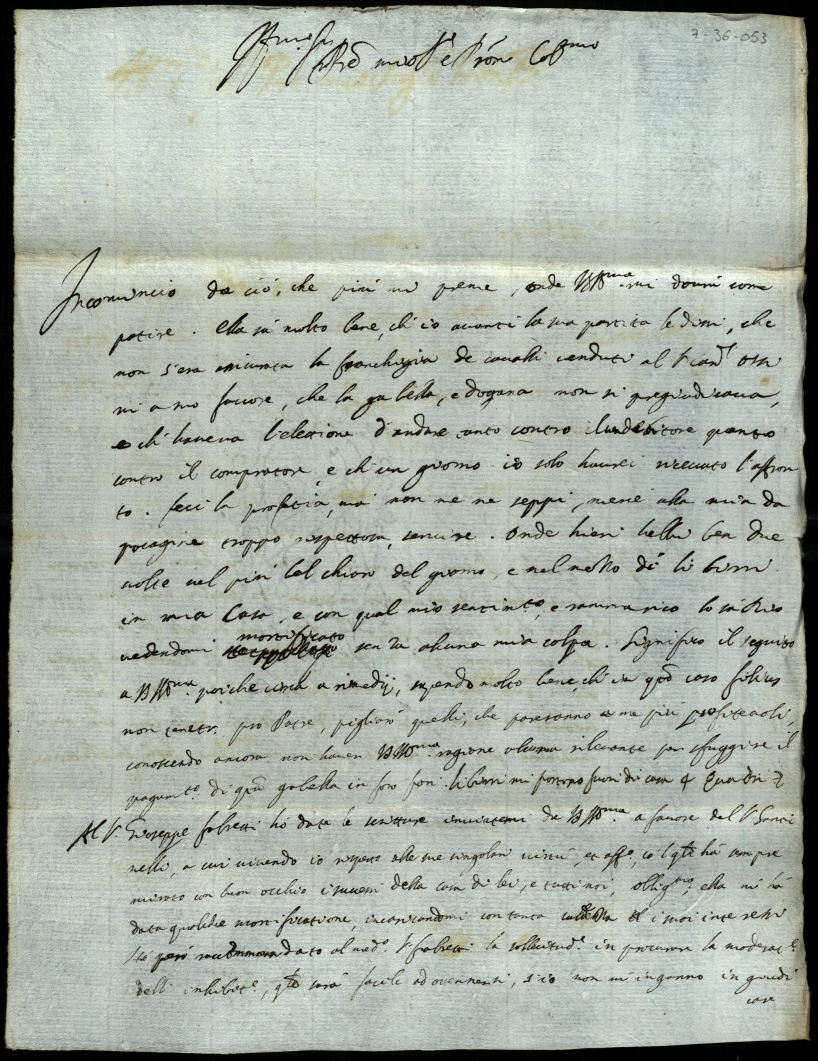 7-36-053
Ill.mo Sig.re
Pre mio Sig.re e Pron Col.mo
Incomincio da ciò, che più mi preme, onde VSIll.ma mi doni come
patire. Ella sà molto bene, ch'io avanti la sua partita le dissi, che
non s'era assicurata la franchigia de cavalli venduti al S. Can. Ossi
ni a suo favore, che la gabella, e dogana non si pregiudicava,
e ch'haveva l'elezione d'andare tanto contro il venditore quanto
contro il compratore, e ch'un giorno io solo haverei riceuuto l'affron
to. Feci la profetia, mà non me ne seppi, mercè alla mia da
pocagine troppo rispettosa, sentire. Onde hieri hebbi ben due
volte nel più bel chiaro del giorno, e nel mezzo dì li birri
in mia Casa, e con qual mio sentim.to, e rammarico lo sà Dio
vedendomi mortificato senza alcuna mia colpa. Significo il seguito
a VSIll.ma perche veda a rimedij, sapendo molto bene, ch'in q.to caso filius
non tenetr. pro Patre, pigliarò quelli, che pareranno a me più profitevoli,
conoscendo ancora non haver VSIll.ma ragione alcuna rilevante per sfuggire il
pagam.to di q.ta gabella in foro fori. li birri mi portono fuori di casa 4 Quadri
Al S. Giuseppe Fabretti hò data le scritture inviatemi da VSIll.ma a favore del S. Santi
nelli, a cui vivendo io rispetto alle sue singolari virtù, et aff.o, co'l q.le hà sempre
mirato con buon occhio i successi della casa di lei, e tutti noi, obblig.mo, ella mi hà
data qualche mortificatione, incaricandomi con tanta i suoi interessi
Hò però raccommandato al med.o S. Fabretti la sollecitud.e in procurar la moderat.e
dell'inhibit.e, q.le sarà facile ad ottenersi, s'io non m'inganno in giudi
care